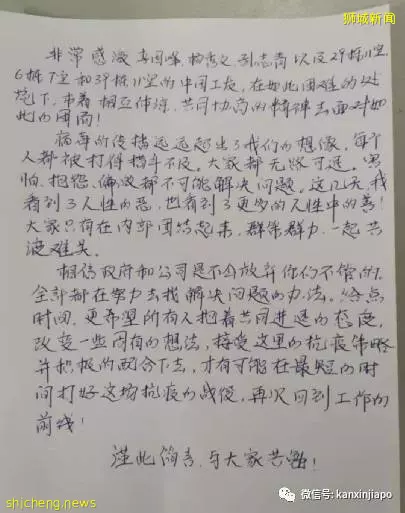 狮城新闻
非常感激李国峰、杨忠文、孙志高以及29栋11室、
6栋7室和39栋11室的中国工友,在如此困难的处
境下,本着相互体谅、共同协商的精神去面对如
此的困局!
病毒的传播远远超出了我们的想像,每个
人都被打得措手不及,大家都无路可退。害
怕、抱怨、偏激都不可能解决问题。这几天,我
看到了人性的恶,也看到了更多的人性中的善!
大家只有在内部团结起来,群策群力,一起共
渡难关。
相信政府和公司是不会放弃你们不管的,
全部都在努力去找解决问题的办法。给点
时间,更希望所有人抱着共同进退的态度,
改变一些固有的想法,接受这里的抗疫策略
并积极的配合下去,才有可能在最短的时
间打好这场抗疫的战役,再次回到工作的
前线!
谨此简言,与大家共勉!
shicheng.news
微信号: kanxinjiapo